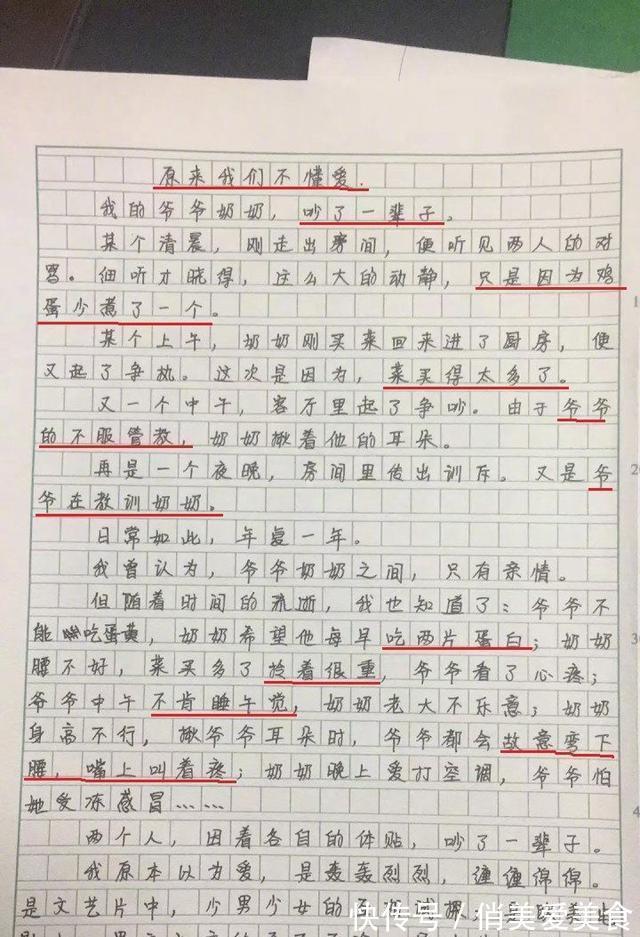 原来我们不懂爱.
我的爷爷奶奶，吵了一辈子。
某个清晨，刚走出房间，便听见两人的对
骂。细听才晓得，这么大的动静，只是因为鸡
蛋少煮了一个。
某个上午，奶奶刚买菜回来进了厨房，便
又起了争执。这次是因为，菜买得太多了。
又一个中午，客厅里起了争吵。由于爷爷
的不服管教，奶奶揪着他的耳朵。
再是一个夜晚，房间里传出训斥。又是爷
爷在教训奶奶。
日常如此，年复一年。
我曾认为，爷爷奶奶之间，只有亲情。
但随着时间的流逝，我也知道了：爷爷不
能吃蛋黄，奶奶希望他每早吃两片蛋白；奶奶
腰不好，菜买多了拎着很重，爷爷看了心疼；
爷爷中午不肯睡午觉，奶奶老大不乐意；奶奶
身高不行，揪爷爷耳朵时，爷爷都会故意弯下
腰，嘴上叫着疼；奶奶晚上爱打空调，爷爷怕
她受冻感冒……
两个人，因着各自的体贴，吵了一辈子。
我原本以为爱，是轰轰烈烈，缠缠绵绵。
是文艺片中，少男少女的
快传号／俏美爱美食